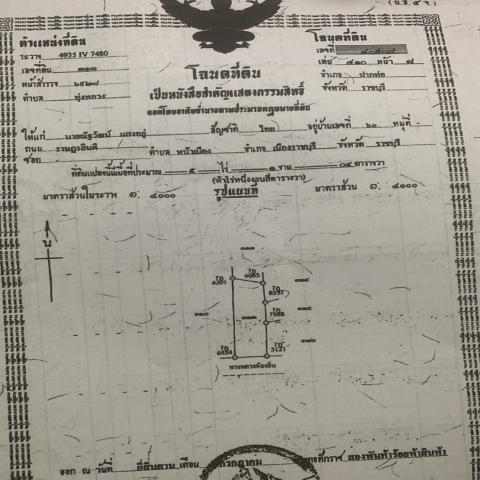 (น.ส.๔ จ.)
ตำแหน่งที่ดิน
ระวาง 4935 IV 7480
เลขที่ดิน ๓๑๓
หน้าสำรวจ ๖๕๒๘
ตำบล ทุ่งหลวง
โฉนดที่ดิน
เลขที่
เล่ม ๔๑๐ หน้า ๘
อำเภอ ปากท่อ
จังหวัด ราชบุรี
โฉนดที่ดิน
เป็นหนังสือสำคัญแสดงกรรมสิทธิ์
ออกโดยอาศัยอำนาจตามประมวลกฎหมายที่ดิน
ให้แก่ นายณัฐวัฒน์ แสงอยู่ สัญชาติ ไทย อยู่บ้านเลขที่ ๖๐ หมู่ที่ -
ถนน ราษฎรยินดี
ซอย ตำบล หน้าเมือง อำเภอ เมืองราชบุรี จังหวัด ราชบุรี
ที่ดินแปลงนี้เนื้อที่ประมาณ ๕ ไร่ ๑ งาน ๐๔ ตารางวา
(ห้าไร่หนึ่งงานสี่ตารางวา)
มาตราส่วนในระวาง ๑ : ๔๐๐๐ รูปแผนที่ มาตราส่วน ๑ : ๔๐๐๐
น
7ถ
6065
7ถ
8557
7ถ
7988
7ถ
6454
7ถ
5121
ทางหลวงท้องถิ่น
ออก ณ วันที่ ยี่สิบสาม เดือน กรกฎาคม พุทธศักราช สองพันห้าร้อยห้าสิบห้า